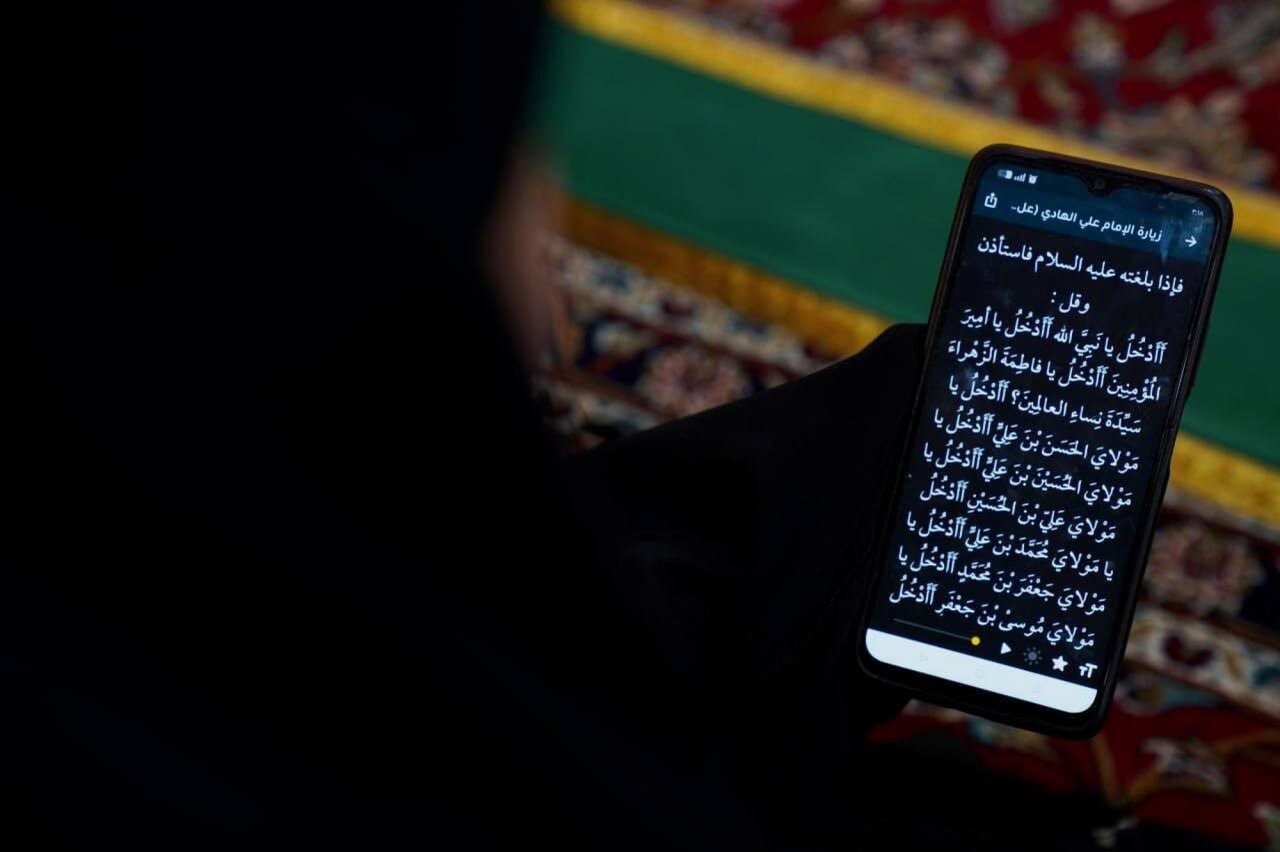 ٣:١٨
زيارة الإمام علي الهادي (عل..
فإذا بلغته عليه السلام فاستأذن
وقل :
أَأَدْخُلُ يا نَبِيَّ الله أَأَدْخُلُ يا أمِيرَ
المُؤْمِنِينَ أَأَدْخُلُ يا فاطِمَةَ الزَّهْراءَ
سَيِّدَةَ نِساءِ العالَمِينَ؟ أَأَدْخُلُ يا
مَوْلايَ الحَسَنَ بْنَ عَلِيٍّ أَأَدْخُلُ يا
مَوْلايَ الحُسَيْنَ بْنَ عَلِيٍّ أَأَدْخُلُ يا
مَوْلايَ عَلِيَّ بْنَ الحُسَيْنِ أَأَدْخُلُ
يا مَوْلايَ مُحَمَّدَ بْنَ عَلِيٍّ أَأَدْخُلُ يا
مَوْلايَ جَعْفَرَ بْنَ مُحَمَّدٍ أَأَدْخُلُ يا
مَوْلايَ مُوسىْ بْنَ جَعْفَرٍ أَأَدْخُلُ
TT